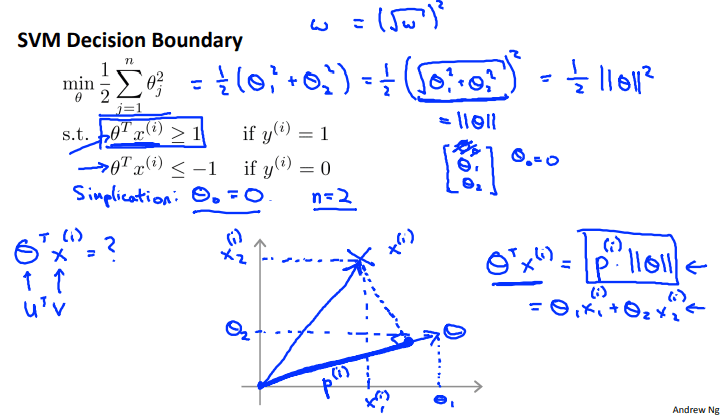 ω = (√ω)²
SVM Decision Boundary
min_θ 1/2 Σ_{j=1}^{n} θ_j² = 1/2 (θ₁² + θ₂²) = 1/2 (√(θ₁² + θ₂²))² = 1/2 ||θ||²
= ||θ||
s.t. θᵀx⁽ⁱ⁾ ≥ 1 if y⁽ⁱ⁾ = 1
→ θᵀx⁽ⁱ⁾ ≤ −1 if y⁽ⁱ⁾ = 0
[θ₁ θ₂] θ₀=0
Simplication: θ₀ = 0. n=2
θᵀx⁽ⁱ⁾ = ?
↑ ↑
uᵀv
x₂⁽ⁱ⁾
x⁽ⁱ⁾
θ₂
θ
p⁽ⁱ⁾
x₁⁽ⁱ⁾
θ₁
θᵀx⁽ⁱ⁾ = p⁽ⁱ⁾ · ||θ|| ←
= θ₁x₁⁽ⁱ⁾ + θ₂x₂⁽ⁱ⁾ ←
Andrew Ng